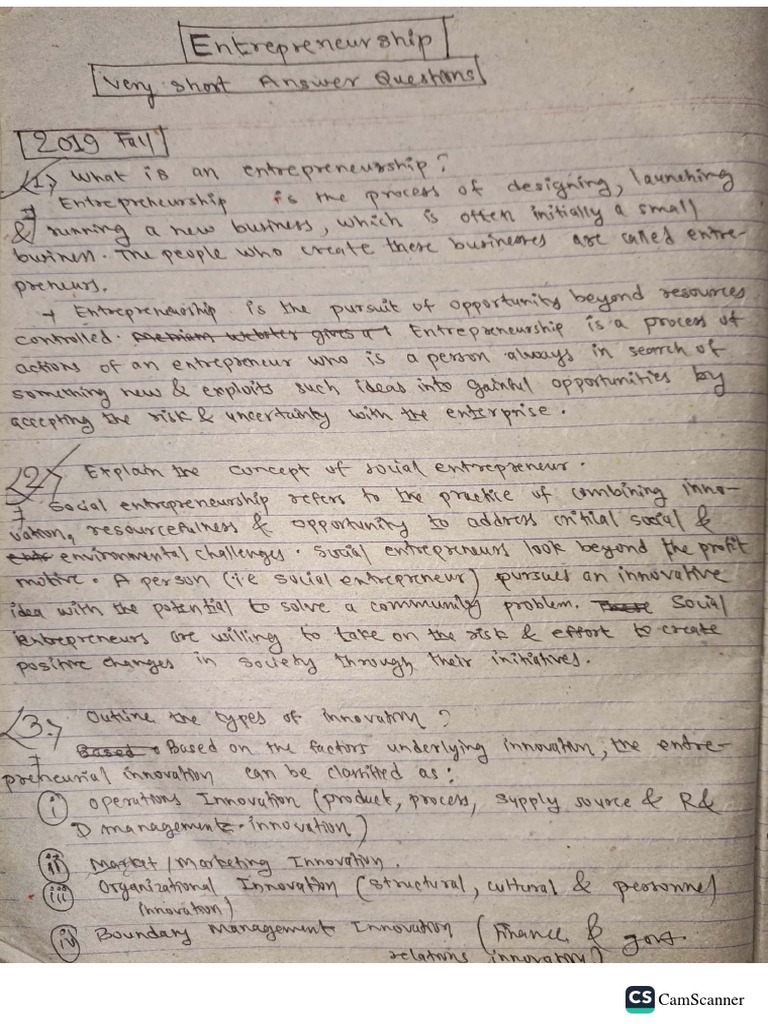 Entrepreneurship
Very Short Answer Questions
2019 Fall
1) What is an entrepreneurship?
→ Entrepreneurship is the process of designing, launching
& running a new business, which is often initially a small
business. The people who create these businesses are called entre-
preneurs.
→ Entrepreneurship is the pursuit of opportunity beyond resources
controlled. Merriam webster gives a Entrepreneurship is a process of
actions of an entrepreneur who is a person always in search of
something new & exploits such ideas into gainful opportunities by
accepting the risk & uncertainty with the enterprise.
2) Explain the concept of social entrepreneur.
→ Social entrepreneurship refers to the practice of combining inno-
vation, resourcefulness & opportunity to address critial social &
environmental challenges. Social entrepreneurs look beyond the profit
motive. A person (i.e social entrepreneur) pursues an innovative
idea with the potential to solve a community problem. Social
Entrepreneurs are willing to take on the risk & effort to create
positive changes in society through their initiatives.
3.) Outline the types of innovation?
→ Based Based on the factors underlying innovation, the entre-
preneurial innovation can be classified as:
i) Operations Innovation (product, process, supply source & R&
D management innovation)
ii) Market/Marketing Innovation.
iii) Organizational Innovation (structural, cultural & personnel
innovation)
iv) Boundary Management Innovation (Finance & govt.
relations innovation)
CS CamScanner